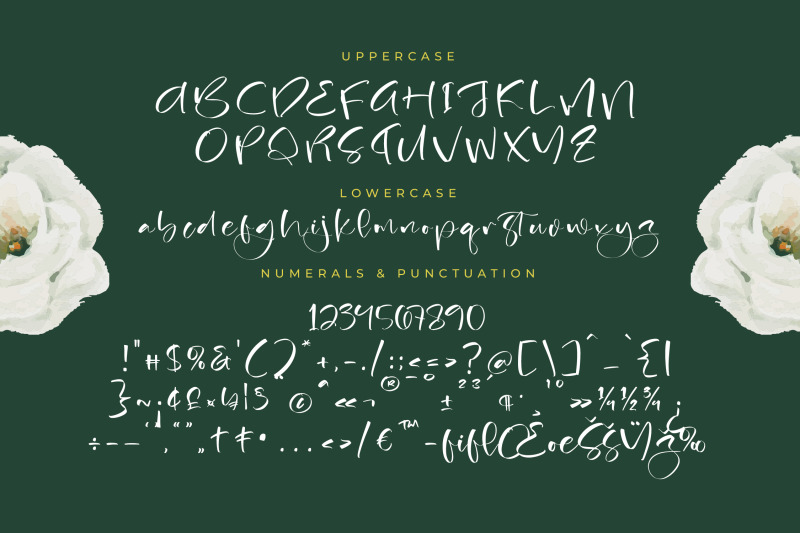 UPPERCASE
ABCDEFGHIJKLMN
OPQRSTUVWXYZ
LOWERCASE
abcdefghijklmnopqrstuvwxyz
NUMERALS & PUNCTUATION
1234567890
!"#$%&'()*+,-./:;<=>?@[\]^_`{|
}~¡¢£¤¥¦§ ©ª«¬®¯°±²³´¶·¹º»¼½¾¿
÷–—‘‚“”„†‡•…‹›⁄€™−fiflŒœŠšŸž‰